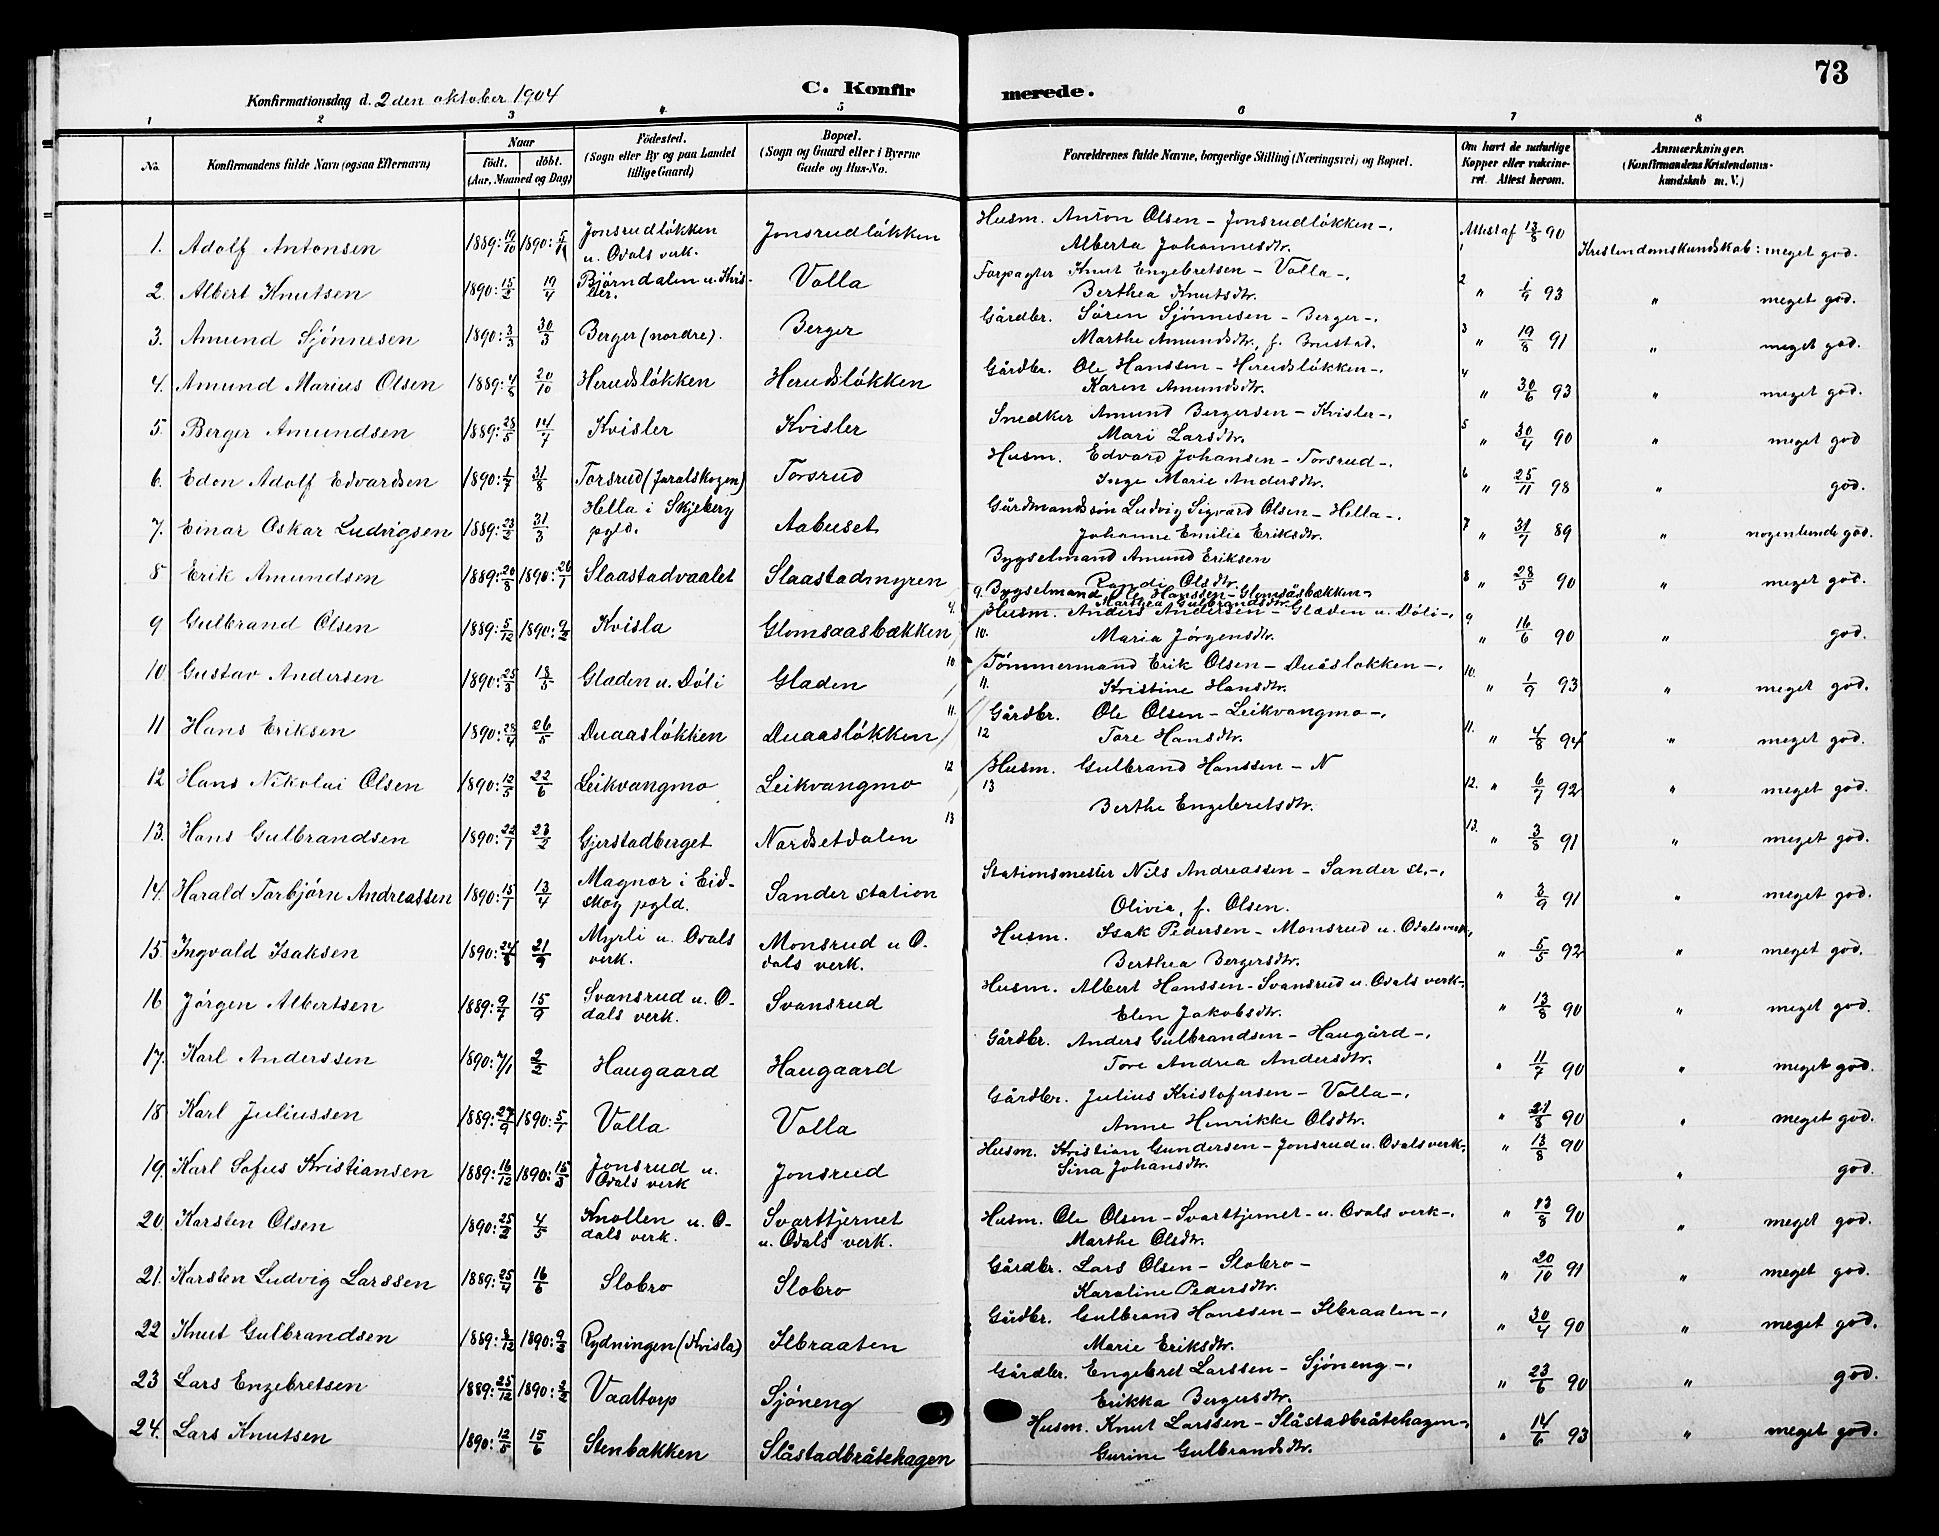 73
Konfirmationsdag d. 2den oktober 1904
C. Konfirmerede.
1 2 3 4 5 6 7 8
No. Konfirmandens fulde Navn (ogsaa Efternavn) Naar födt. döbt. (Aar, Maaned og Dag) Födested. (Sogn eller By og paa Landet tillige Gaard) Bopæl. (Sogn og Gaard eller i Byerne Gade og Hus-No. Forældrenes fulde Navne, borgerlige Stilling (Næringsvei) og Bopæl. Om havt de naturlige Kopper eller vakcineret. Attest herom. Anmærkninger. (Konfirmandens Kristendomskundskab m. V.)
1. Adolf Antonsen 1889: 19/10 1890: 5/1 Jonsrudløkken u. Odals verk. Jonsrudløkken Husm. Anton Olsen – Jonsrudløkken –, Alberta Johannesdtr. Attest af 13/8 90 Kristendomskundskab: meget god.
2. Albert Knutsen 1890: 15/2 19/4 Bjørndalen u. Kvisler. Volla Forpagter Knut Engebretsen – Volla –, Berthea Knutsdtr. 2 " 1/9 93 " meget god.
3. Amund Sjönnesen 1890: 3/3 30/3 Berger (nordre). Berger Gårdbr. Sören Sjönnesen – Berger –, Marthe Amundsdtr., f. 3 " 19/8 91 " meget god.
4. Amund Marius Olsen 1889: 4/8 20/10 Herudsløkken Herudsløkken Gårdbr. Ole Hanssen – Herudsløkken –, Karen Amundsdtr. 4 " 30/6 93 " meget god.
5. Berger Amundsen 1889: 28/5 14/7 Kvisler Kvisler Snedker Amund Bergersen – Kvisler –, Mari Larsdtr. 5 " 30/4 90 " meget god
6. Edon Adolf Edvardsen 1890: 1/7 31/8 Torsrud (Jaralskogen) Torsrud Husm. Edvard Johansen – Torsrud –, Inge Marie Andersdtr. 6 " 25/11 98 " god.
7. Einar Oskar Ludvigsen 1889: 23/2 31/3 Hella i Skjeberg pgld. Aabuset Gårdmandssön Ludvig Sigvard Olsen – Hella –, Johanne Emilia Eriksdtr. 7 " 31/7 89 " nogenlunde god.
8 Erik Amundsen 1889: 20/8 1890: 26/1 Slaastadvaalet Slaastadmyren Bygselmand Amund Eriksen Randi Olsdtr. 8 " 28/5 90 " meget god.
9 Gulbrand Olsen 1889: 5/12 1890: 9/2 Kvisla Glomsaasbækken 9. Bygselmand Ole Hanssen – Glomsåsbækken – Marthea Gulbrandsdtr. 9 " 16/6 90 " god.
10 Gustav Andersen 1890: 25/3 18/5 Gladen u. Döli Gladen 10. Husm. Anders Andersen – Gladen u. Döli –, Maria Jörgensdtr. 10. " 1/9 93 " meget god.
11 Hans Eriksen 1890: 28/4 26/5 Duaasløkken Duaasløkken 11. Tömmermand Erik Olsen – Duåsløkken –, Kristine Hansdtr. 11. " 4/8 94 " meget god.
12 Hans Nikolai Olsen 1890: 12/5 22/6 Leikvangmo Leikvangmo 12 Gårdbr. Ole Olsen – Leikvangmo –, Tore Hansdtr. 12. " 6/7 92 " meget god.
13. Hans Gulbrandsen 1890: 22/1 23/2 Gjerstadberget Nordsetdalen 13 Husm. Gulbrand Hanssen – N Berthe Engebretsdtr. 13. " 3/8 91 " meget god.
14. Harald Torbjörn Andreassen 1890: 15/1 13/4 Magnor i Eidskog pgld. Sander station Stationsmester Nils Andreassen – Sander st. –, Olivia, f. Olsen. " 3/9 91 " meget god.
15. Ingvald Isaksen 1890: 24/8 21/9 Myrli u. Odals verk. Monsrud u Odals verk. Husm. Isak Pedersen – Monsrud u. Odals verk, Berthea Bergersdtr. " 5/5 92 " meget god.
16 Jörgen Albertsen 1889: 9/7 15/9 Svansrud u. Odals verk. Svansrud Husm. Albert Hanssen – Svansrud u. Odals verk –, Elen Jakobsdtr. " 13/8 90 " meget god.
17. Karl Anderssen 1890: 7/1 2/2 Haugaard Haugaard Gårdbr. Anders Gulbrandsen – Haugård –, Tore Andrea Andersdtr. " 11/7 90 " meget god.
18 Karl Juliussen 1889: 27/9 1890: 5/1 Volla Volla Gårdbr. Julius Kristofersen – Volla –, Anne Henrikke Olsdtr. " 21/8 90 " meget god.
19. Karl Sofus Kristiansen 1889: 16/12 1890: 15/3 Jonsrud u. Odals verk Jonsrud Husm. Kristian Gundersen – Jonsrud u. Odals verk –, Sina Johansdtr. " 13/8 90 " god.
20. Karsten Olsen 1890: 25/2 4/5 Knollen u. Odals verk. Svarttjernet u. Odals verk. Husm. Ole Olsen – Svarttjernet – u. Odals verk –, Marthe Olsdtr. " 13/8 90 " meget god.
21. Karsten Ludvig Larssen 1889: 25/4 16/6 Slobro Slobro Gårdbr. Lars Olsen – Slobro – Karoline Pedersdtr. " 20/10 91 " meget god.
22 Knut Gulbrandsen 1889: 8/12 1890: 9/3 Rydningen (Kvisla) Ilbraaten Gårdbr. Gulbrand Hanssen – Ilbraaten –, Marie Eriksdtr. " 30/4 90 " meget god.
23 Lars Engebretsen 1889: 25/12 1890: 2/2 Vaaltorp Sjöneng Gårdbr. Engebret Larssen – Sjöneng –, Erikka Bergersdtr. " 23/6 90 " god.
24. Lars Knutsen 1890: 12/5 15/6 Stenbækken Slåstadbråtehagen Husm. Knut Larssen – Slåstadbråtehagen –, Gurine Gulbrandsdtr. " 14/6 93 " meget god.